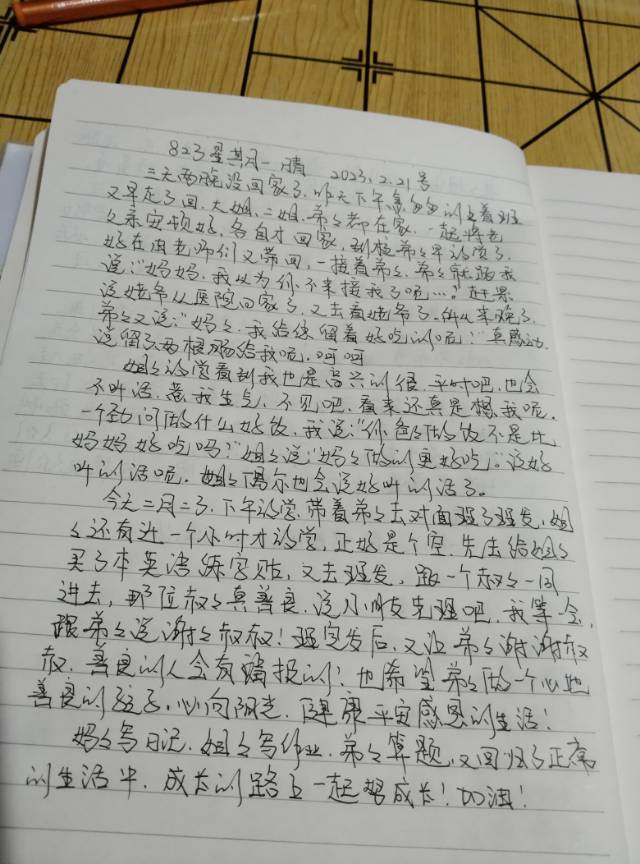 823 星期一 晴 2023.2.21号
三天两晚没回家了,昨天下午急匆匆的又着班
又早走了回,大姐、二姐、弟々都在家,一起将老
父亲安顿好,各自才回家,到校弟々早放学了,
好在由老师们又带回,一接着弟々,弟々就跟我
说:"妈妈,我以为你不来接我了呢…。"赶紧
说姥爷从医院回家了,又去看姥爷了,所以来晚了,
弟々又说:"妈々,我给你留着好吃的呢!"真感动,
说留了两根肠给我呢,呵呵
姐々放学看到我也是高兴的很,平时吧,也会
不听话,惹我生气,不见吧,看来还真是想我呢,
一个劲问做什么好饭,我说:"你爸々做饭不是比
妈妈好吃吗?"姐々说:"妈々做的更好吃。"说好
听的话呢,姐々偶尔也会说好听的话了。
今天二月二了,下午放学,带着弟々去对面理了理发,姐
々还有近一个小时才放学,正好是个空,先去给姐々
买了本英语练字贴,又去理发,跟一个叔々一同
进去,那位叔々真善良,说小朋友先理吧,我等一会,
跟弟々说谢々叔叔!理完发后,又让弟々谢谢叔
叔,善良的人会有福报的!也希望弟々做一个心地
善良的孩子,心向阳光,健康平安感恩的生活!
妈々写日记,姐々写作业,弟々算题,又回归了正常
的生活中,成长的路上一起努成长!加油!